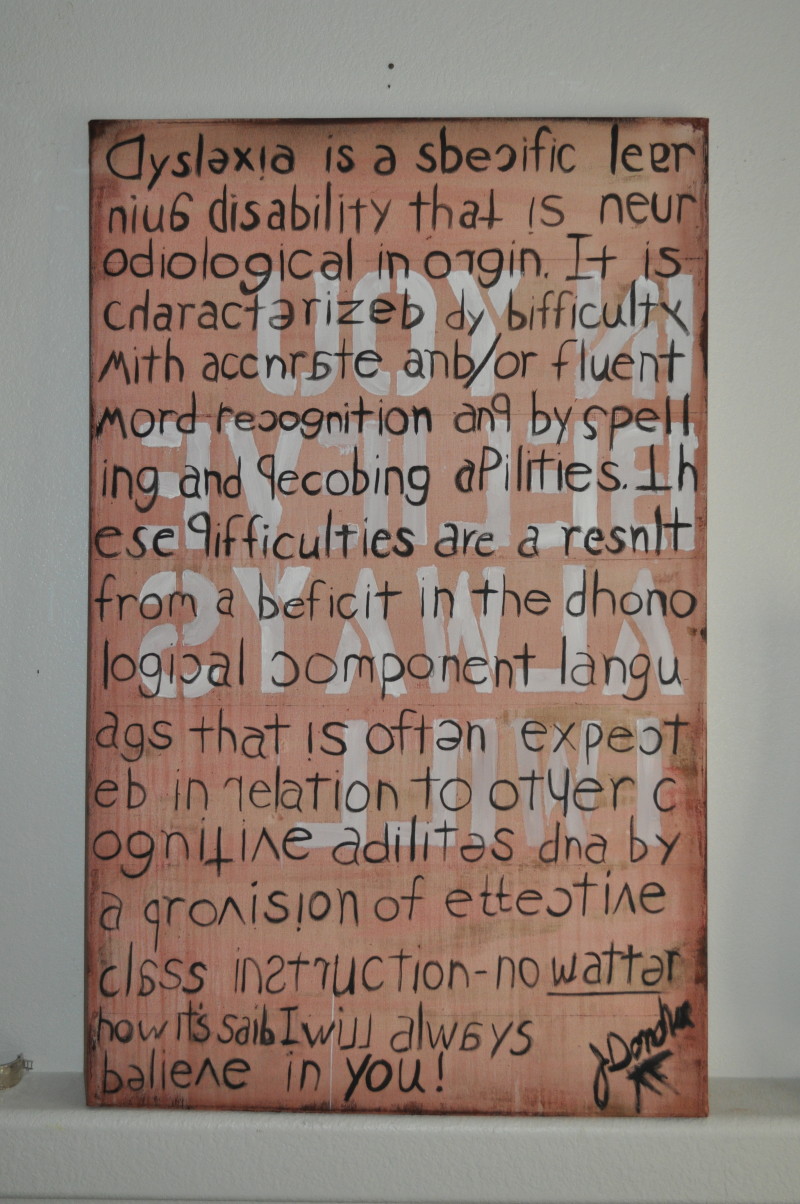 Dyslexia is a sbecific leer
niug disability that is neur
odiological in origin. It is
cdaracterizeb dy bifficulty
with accnrate anb/or fluent
word recognition anq by spell
ing and qecobing aPilities. Th
ese qifficulties are a resnlt
from a beficit in the dhono
logical component langu
ags that is often expect
eb in relation to otyer c
ognitive adilites dna by
a qrovision of ettective
class instruction-no watter
how it's saib I will always
believe in you!
J Dondlee
I WILL
ALWAYS
BELIEVE
IN YOU